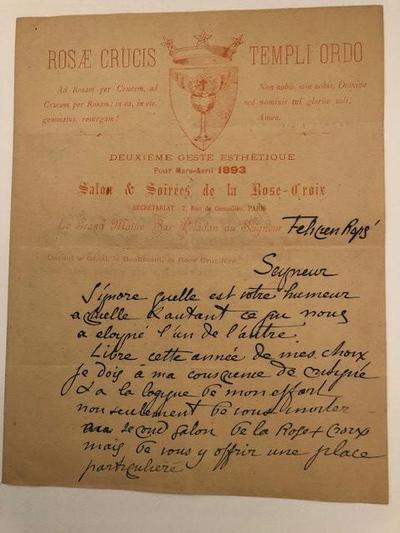 ROSÆ CRUCIS
TEMPLI ORDO
Ad Rosam per Crucem, ad
Crucem per Rosam; in ea, in eis,
gemmatus, resurgam!
Non nobis, non nobis, Domine
sed nominis tui gloriæ soli.
Amen.
DEUXIÈME GESTE ESTHÉTIQUE
Pour Mars-Avril 1893
Salon & Soirées de la Rose-Croix
SECRÉTARIAT, 2, Rue de PARIS
Le Grand Maître Sar Péladan au Seigneur Felicien Rops
Devant le Graal, le Beauséant, la Rose Crucifère,
Seigneur
J'ignore quelle est votre humeur
a quelle d'autant ce qui nous
a eloyné l'un de l'autre.
Libre cette année de mes choix
je dois à ma conscience de
& a la logique de mon effort
non seulement de vous inviter
au second salon de la Rose + Croix
mais de vous y offrir une place
particulière